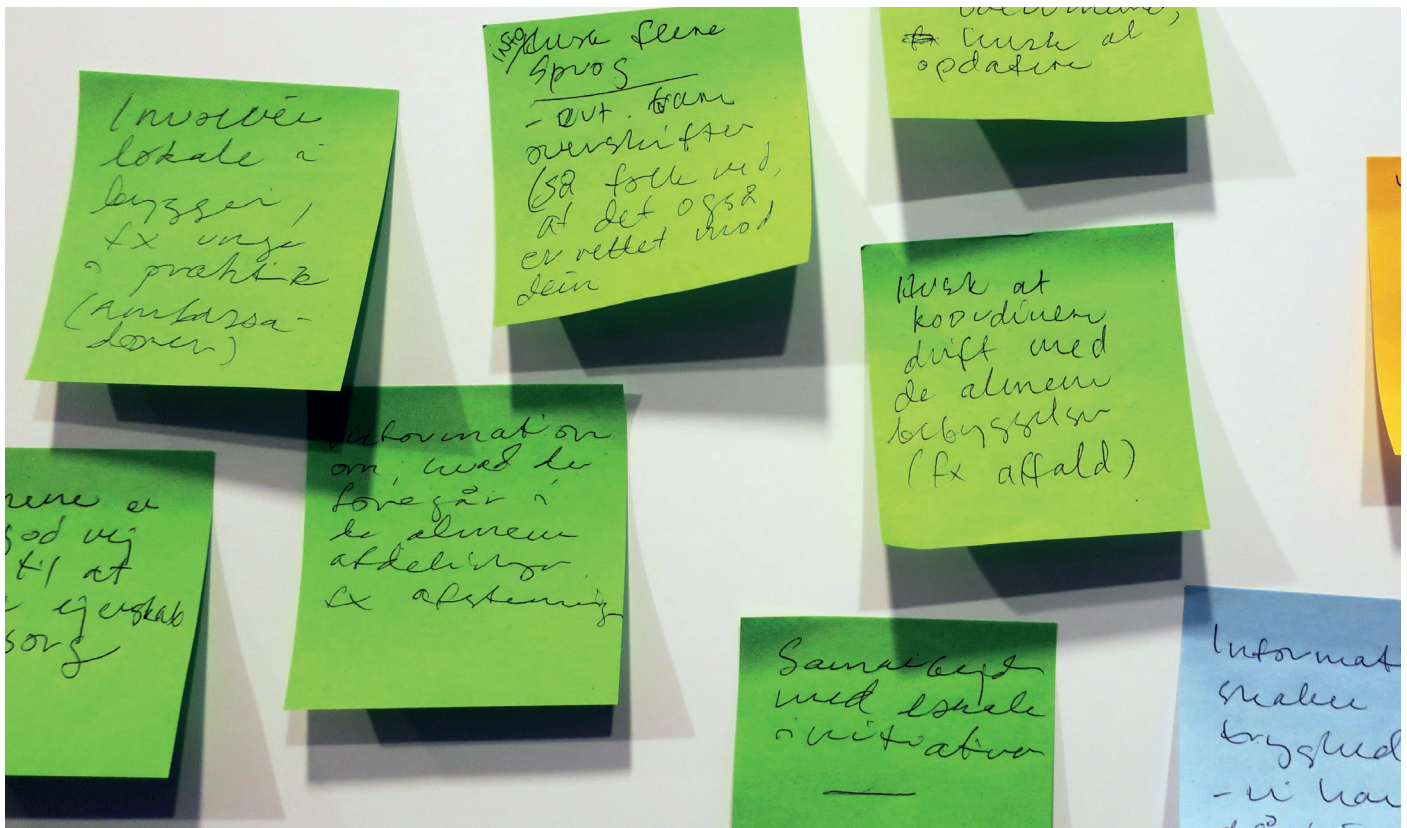 Involvér
lokale i
byggeri,
fx unge
i praktik
(ambassa-
dører)
info/Husk flere
sprog
- evt. bare
overskrifter
(så folk ved,
at det også
er rettet mod
dem
husk at
opdatere
Husk at
koordinere
drift med
de almene
bebyggelser
(fx affald)
Information
om, hvad der
foregår i
de almene
afdelinger
fx afstemning
er
god vej
til at
ejerskab
sorg
Samarbejde
med lokale
initiativer
Informat
skaber
tryghed
- vi har